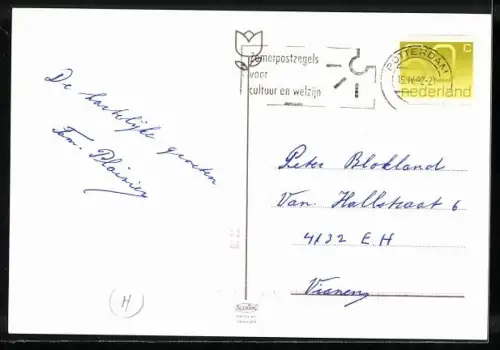 De hartelijke groeten
Fam. Plaisier
Zomerpostzegels
voor
cultuur en welzijn
ROTTERDAM
nederland
C
Peter Blokland
Van. Hallstraat 6
4132 E H
Vianen
H